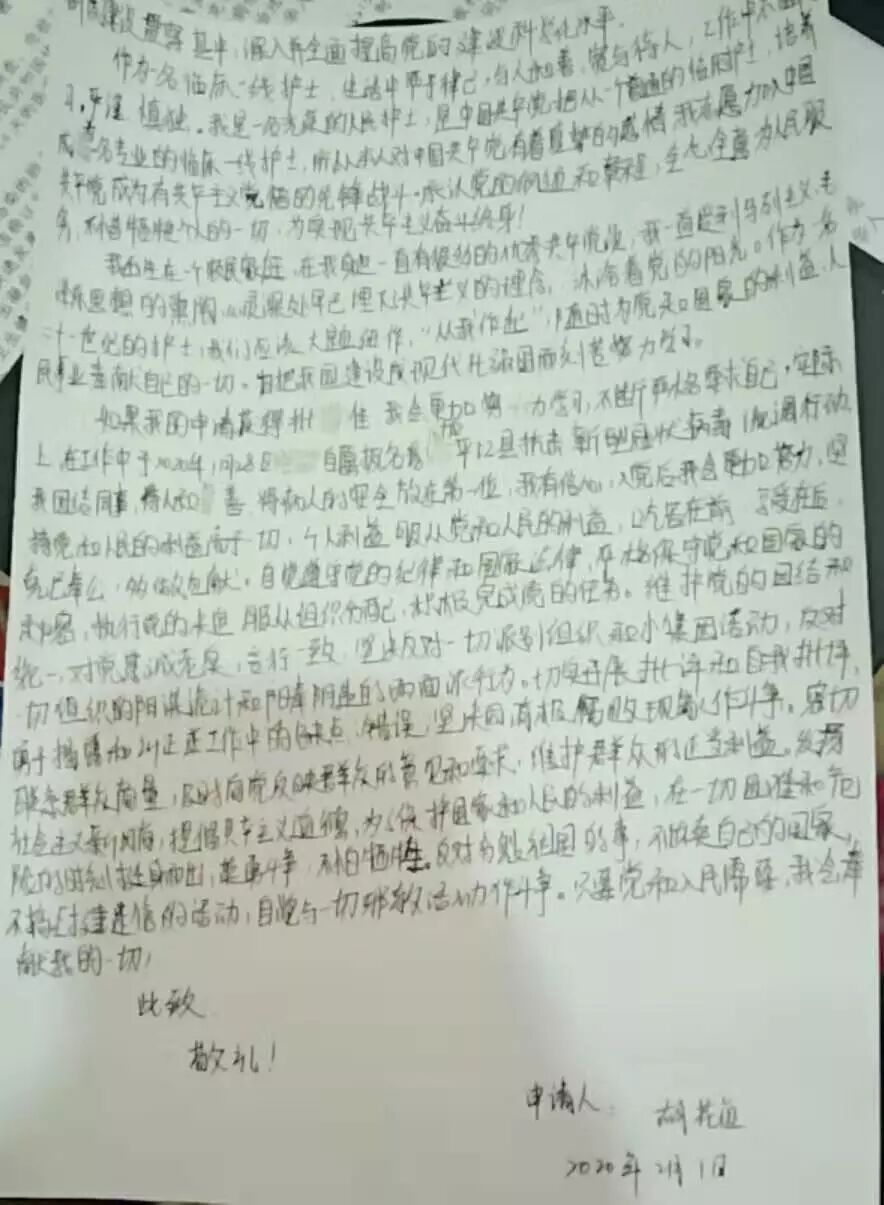 设贯穿其中,深入齐全面提高党的建设科学化水平.
作为一名临床一线护士,生活中严于律己,与人和善,宽与待人,工作中
习,严谨慎独。我是一名光荣的人民护士,是中国共产党把从一个普通的临时护士,培养
成为一名专业的临床一线护士,所以本人对中国共产党有着的感情我志愿加入中国
共产党成为有共产主义觉悟的先锋战斗承认党的纲领和章程,全心全意为人民服
务,不惜牺牲个人的一切,为实现共产主义奋斗终身!
我出生在一个农民家庭,在我身边一直有很多的优秀共产党员,我一直受到马列主义、毛
泽东思想的熏陶,心灵深处早已埋下共产主义的理念,沐浴着党的阳光。作为一名
二十一世纪的护士,我们应该大胆组作,"从我作起",随时为党和国家的利益,人
民事业奉献自己的一切。为把我国建设成现代化强国而刻苦努力学习。
如果我的申请获得批准 我会更加努力学习,不断严格要求自己,实际
上,在工作中于2020年1月28日自愿报名为平江县抗击新型冠状病毒
我团结同事,待人和善,将病人的安全放在第一位,我有信心,入党后我会更加努力,坚
持党和人民的利益高于一切,个人利益服从党和人民的利益,吃苦在前 享受在后,
克己奉公,多做贡献。自觉遵守党的纪律和国家法律,严格保守党和国家的
秘密,执行党的决定 服从组织分配,积极完成党的任务。维护党的团结和
统一,对党忠诚老实,言行一致,坚决反对一切派别组织和小集团活动,反对
一切组织的阴谋诡计和阳奉阴违的两面派行为。切实开展批评和自我批评,
勇于揭露和纠正工作中的缺点、错误,坚决同消极腐败现象作斗争。密切
联系群众商量,及时向党反映群众的意见和要求,维护群众的正当利益。发扬
社会主义新风尚,提倡共产主义道德,为了保护国家和人民的利益,在一切困难和危
险的时刻挺身而出,英勇斗争,不怕牺牲。反对分裂祖国的事,不做卖自己的国家,
不搞封建迷信的活动,自觉与一切邪教活动作斗争。只要党和人民需要,我会奉
献我的一切!
此致
敬礼!
申请人:
2020年2月1日